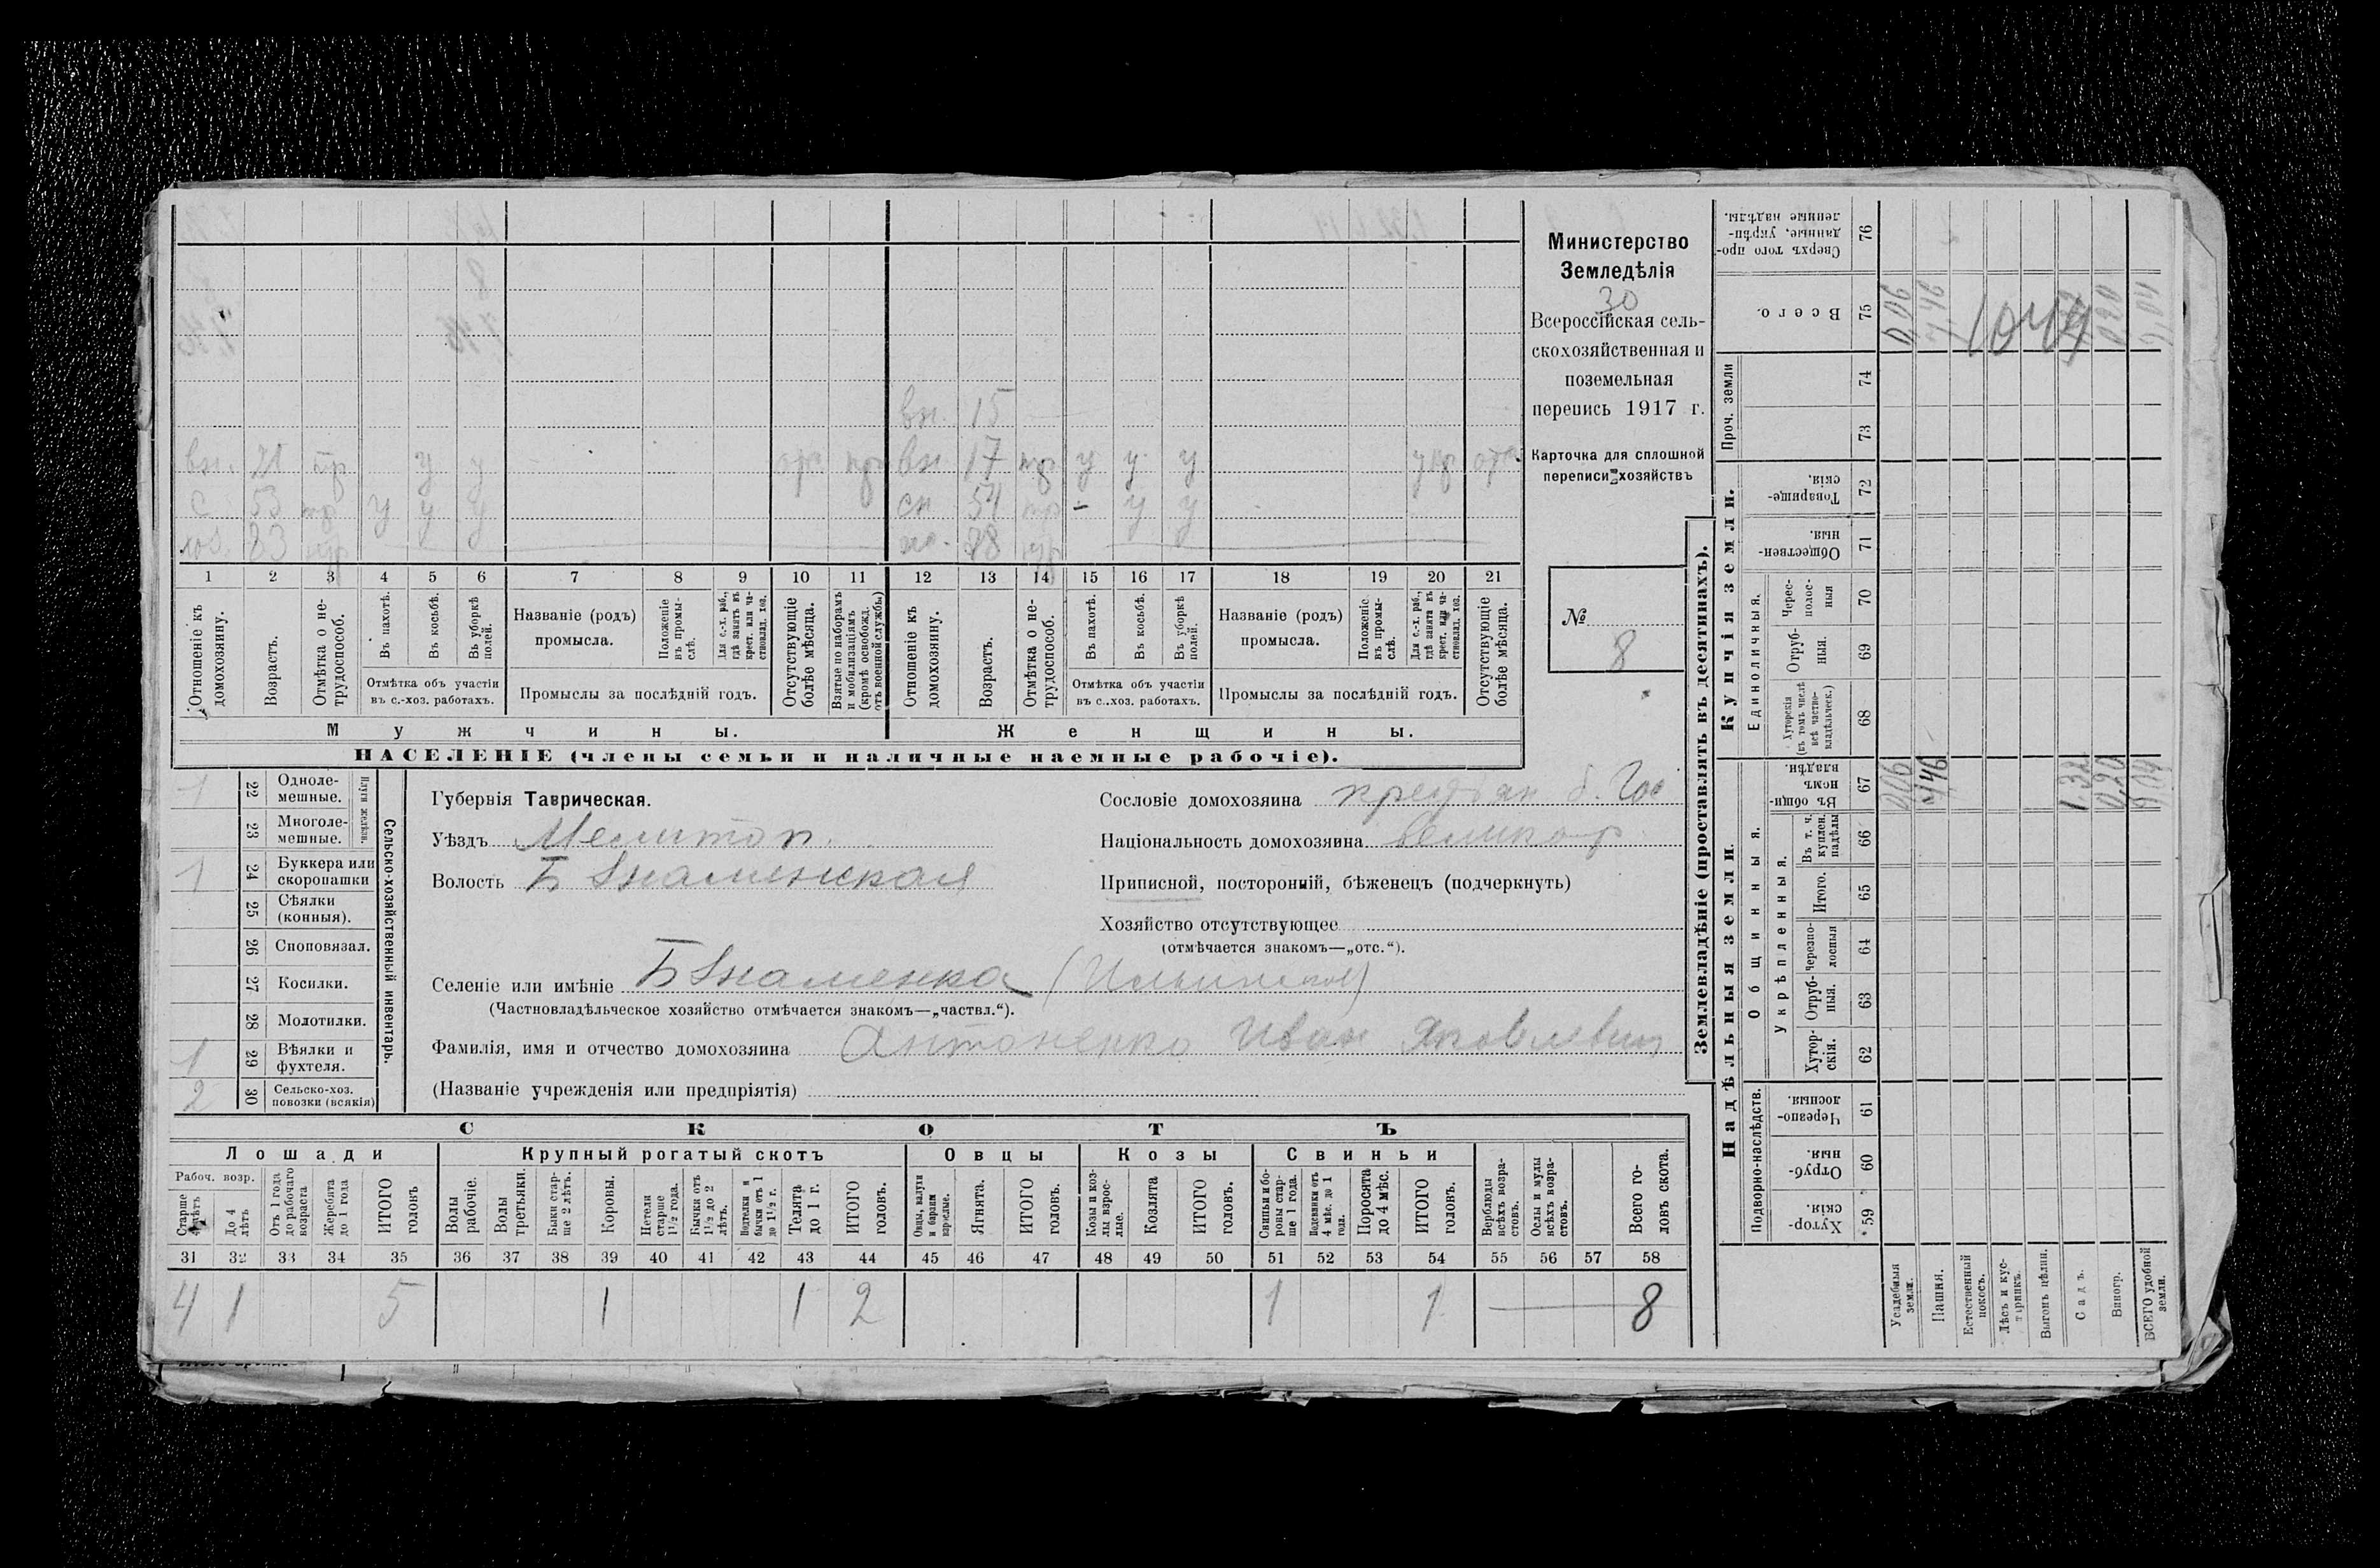 Министерство
Земледѣлія
30
Всероссійская сель-
скохозяйственная и
поземельная
перепись 1917 г.
Карточка для сплошной
переписи хозяйствъ
№
8
вн. 15
вн. 21 нр у у вн 17 нр у у у укр
с 53 нр у у у сн 54 нр - у у
83 88
1 2 3 4 5 6 7 8 9 10 11 12 13 14 15 16 17 18 19 20 21
Отношеніе къ домохозяину.
Возрастъ.
Отмѣтка о не-трудоспособ.
Въ пахотѣ.
Въ косьбѣ.
Въ уборкѣ полей.
Отмѣтка объ участіи
въ с.-хоз. работахъ.
Названіе (родъ)
промысла.
Положеніе въ промы-слѣ.
Для с.-х. раб., гдѣ занятъ въ крест. или ча-ствовлад. хоз.
Промыслы за послѣдній годъ.
Отсутствующіе болѣе мѣсяца.
Взятые по наборамъ и мобилизаціямъ (кромѣ освобожд. отъ военной службы)
Отношеніе къ домохозяину.
Возрастъ.
Отмѣтка о не-трудоспособ.
Въ пахотѣ.
Въ косьбѣ.
Въ уборкѣ полей.
Отмѣтка объ участіи
въ с.-хоз. работахъ.
Названіе (родъ)
промысла.
Положеніе въ промы-слѣ.
Для с.-х. раб., гдѣ занята въ крест. или ча-ствовлад. хоз.
Промыслы за послѣдній годъ.
Отсутствующіе болѣе мѣсяца.
Мужчины.
Женщины.
НАСЕЛЕНІЕ (члены семьи и наличные наемные рабочіе).
1 22 Одноле-мешные.
23 Многоле-мешные.
1 24 Буккера или скоропашки
25 Сѣялки (конныя).
26 Сноповязал.
27 Косилки.
28 Молотилки.
1 29 Вѣялки и фухтеля.
2 30 Сельско-хоз. повозки (всякія)
Плуги желѣзн.
Сельско-хозяйственный инвентарь.
Губернія Таврическая.
Уѣздъ Мелитоп.
Волость Б Знаменская
Сословіе домохозяина крестьян б. Гос
Національность домохозяина великор.
Приписной, посторонній, бѣженецъ (подчеркнуть)
Хозяйство отсутствующее
(отмѣчается знакомъ—„отс.“).
Селеніе или имѣніе Б Знаменка (Ильинской)
(Частновладѣльческое хозяйство отмѣчается знакомъ—„частвл.“).
Фамилія, имя и отчество домохозяина Антоненко Иван Яковлевич
(Названіе учрежденія или предпріятія)
СКОТЪ
Лошади
Крупный рогатый скотъ
Овцы
Козы
Свиньи
Рабоч. возр.
Старше 4 лѣтъ
До 4 лѣтъ
Отъ 1 года до рабочаго возраста
Жеребята до 1 года
ИТОГО головъ
Волы рабочіе.
Волы третьяки.
Быки стар-ше 2 лѣтъ.
Коровы.
Нетели старше 1½ года.
Бычки отъ 1½ до 2 лѣтъ.
Нетелки и бычки отъ 1 до 1½ г.
Телята до 1 г.
ИТОГО головъ.
Овцы, валухи и бараны взрослые.
Ягнята.
ИТОГО головъ.
Козы и коз-лы взрос-лые.
Козлята
ИТОГО головъ.
Свиньи и бо-ровы стар-ше 1 года.
Подсвинки отъ 4 мѣс. до 1 года.
Поросята до 4 мѣс.
ИТОГО головъ.
Верблюды всѣхъ возра-стовъ.
Ослы и мулы всѣхъ возра-стовъ.
Всего го-ловъ скота.
31 32 33 34 35 36 37 38 39 40 41 42 43 44 45 46 47 48 49 50 51 52 53 54 55 56 57 58
4 1 5 1 1 2 1 1 8
Землевладѣніе (проставлять въ десятинахъ).
Купчія земли.
Надѣльныя земли.
Сверхъ того про-данные, укрѣп-ленные надѣлы. 76
Всего. 75
Проч. земли
74
73
Товарище-скія. 72
Обществен-ныя. 71
Единоличныя.
Черес-полос-ныя 70
Отруб-ныя. 69
Хуторскія (въ томъ числѣ всѣ частно-владѣльческ.) 68
Общинныя.
Въ общи-номъ владѣн. 67
Укрѣпленныя.
Въ т. ч. куплен. надѣлы 66
Итого. 65
Черезпо-лосныя 64
Отруб-ныя. 63
Хутор-скія. 62
Подворно-наслѣдств.
Черезпо-лосныя. 61
Отруб-ныя. 60
Хутор-скія. 59
Усадебныя земли.
Пашня.
Естественный покосъ.
Лѣсъ и кус-тарникъ.
Выгонъ цѣлин.
Садъ.
Виногр.
ВСЕГО удобной земли.
0,06
7,46
1,32
0,20
9,04
0,06
7,46
0,20
9,04